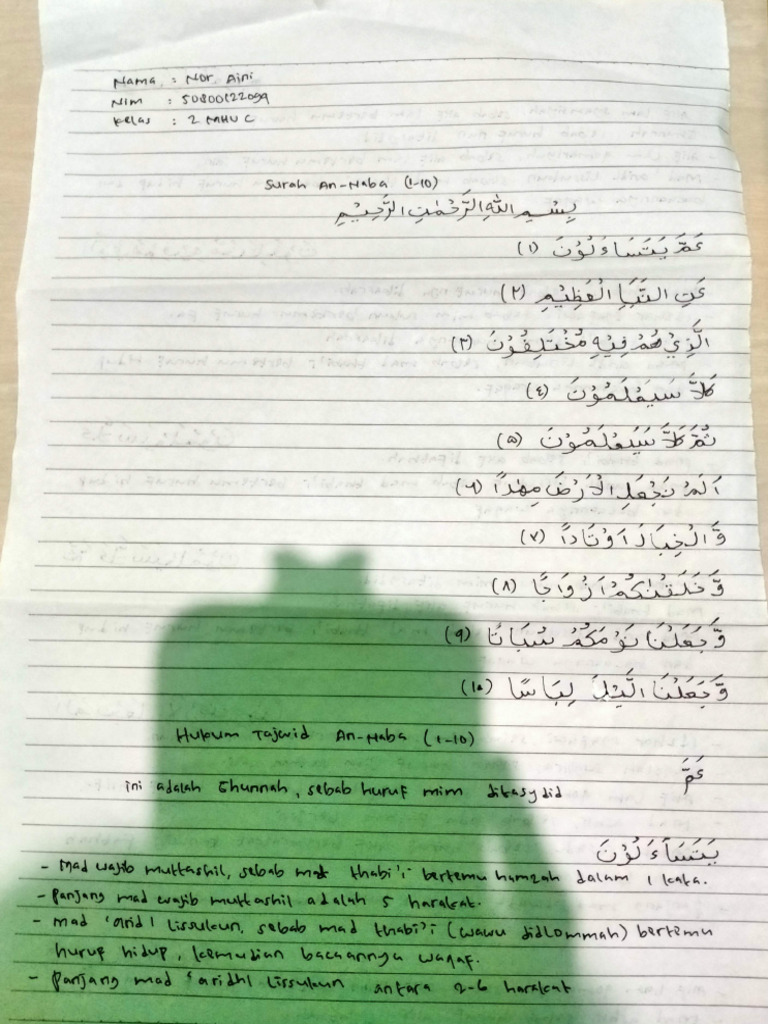 Nama : Nor Aini
NIM : 50800122099
Kelas : 2 MHU C
Surah An-Naba (1-10)
بِسْمِ اللهِ الرَّحْمٰنِ الرَّحِيْمِ
عَمَّ يَتَسَاءَلُوْنَ (١)
عَنِ النَّبَإِ الْعَظِيْمِ (٢)
الَّذِيْ هُمْ فِيْهِ مُخْتَلِفُوْنَ (٣)
كَلَّا سَيَعْلَمُوْنَ (٤)
ثُمَّ كَلَّا سَيَعْلَمُوْنَ (٥)
اَلَمْ نَجْعَلِ الْاَرْضَ مِهٰدًا (٦)
وَّالْجِبَالَ اَوْتَادًا (٧)
وَّخَلَقْنٰكُمْ اَزْوَاجًا (٨)
وَّجَعَلْنَا نَوْمَكُمْ سُبَاتًا (٩)
وَّجَعَلْنَا الَّيْلَ لِبَاسًا (١٠)
Hukum Tajwid An-Naba (1-10)
عَمَّ
ini adalah Ghunnah, sebab huruf mim ditasydid
يَتَسَآءَلُوْنَ
- Mad wajib muttashil, sebab mad thabi'i bertemu hamzah dalam 1 kata.
- Panjang mad wajib muttashil adalah 5 harakat.
- mad 'aridl lissukun, sebab mad thabi'i (wawu didlommah) bertemu
huruf hidup, kemudian bacaannya waqaf.
- Panjang mad 'aridhl lissukun antara 2-6 harakat